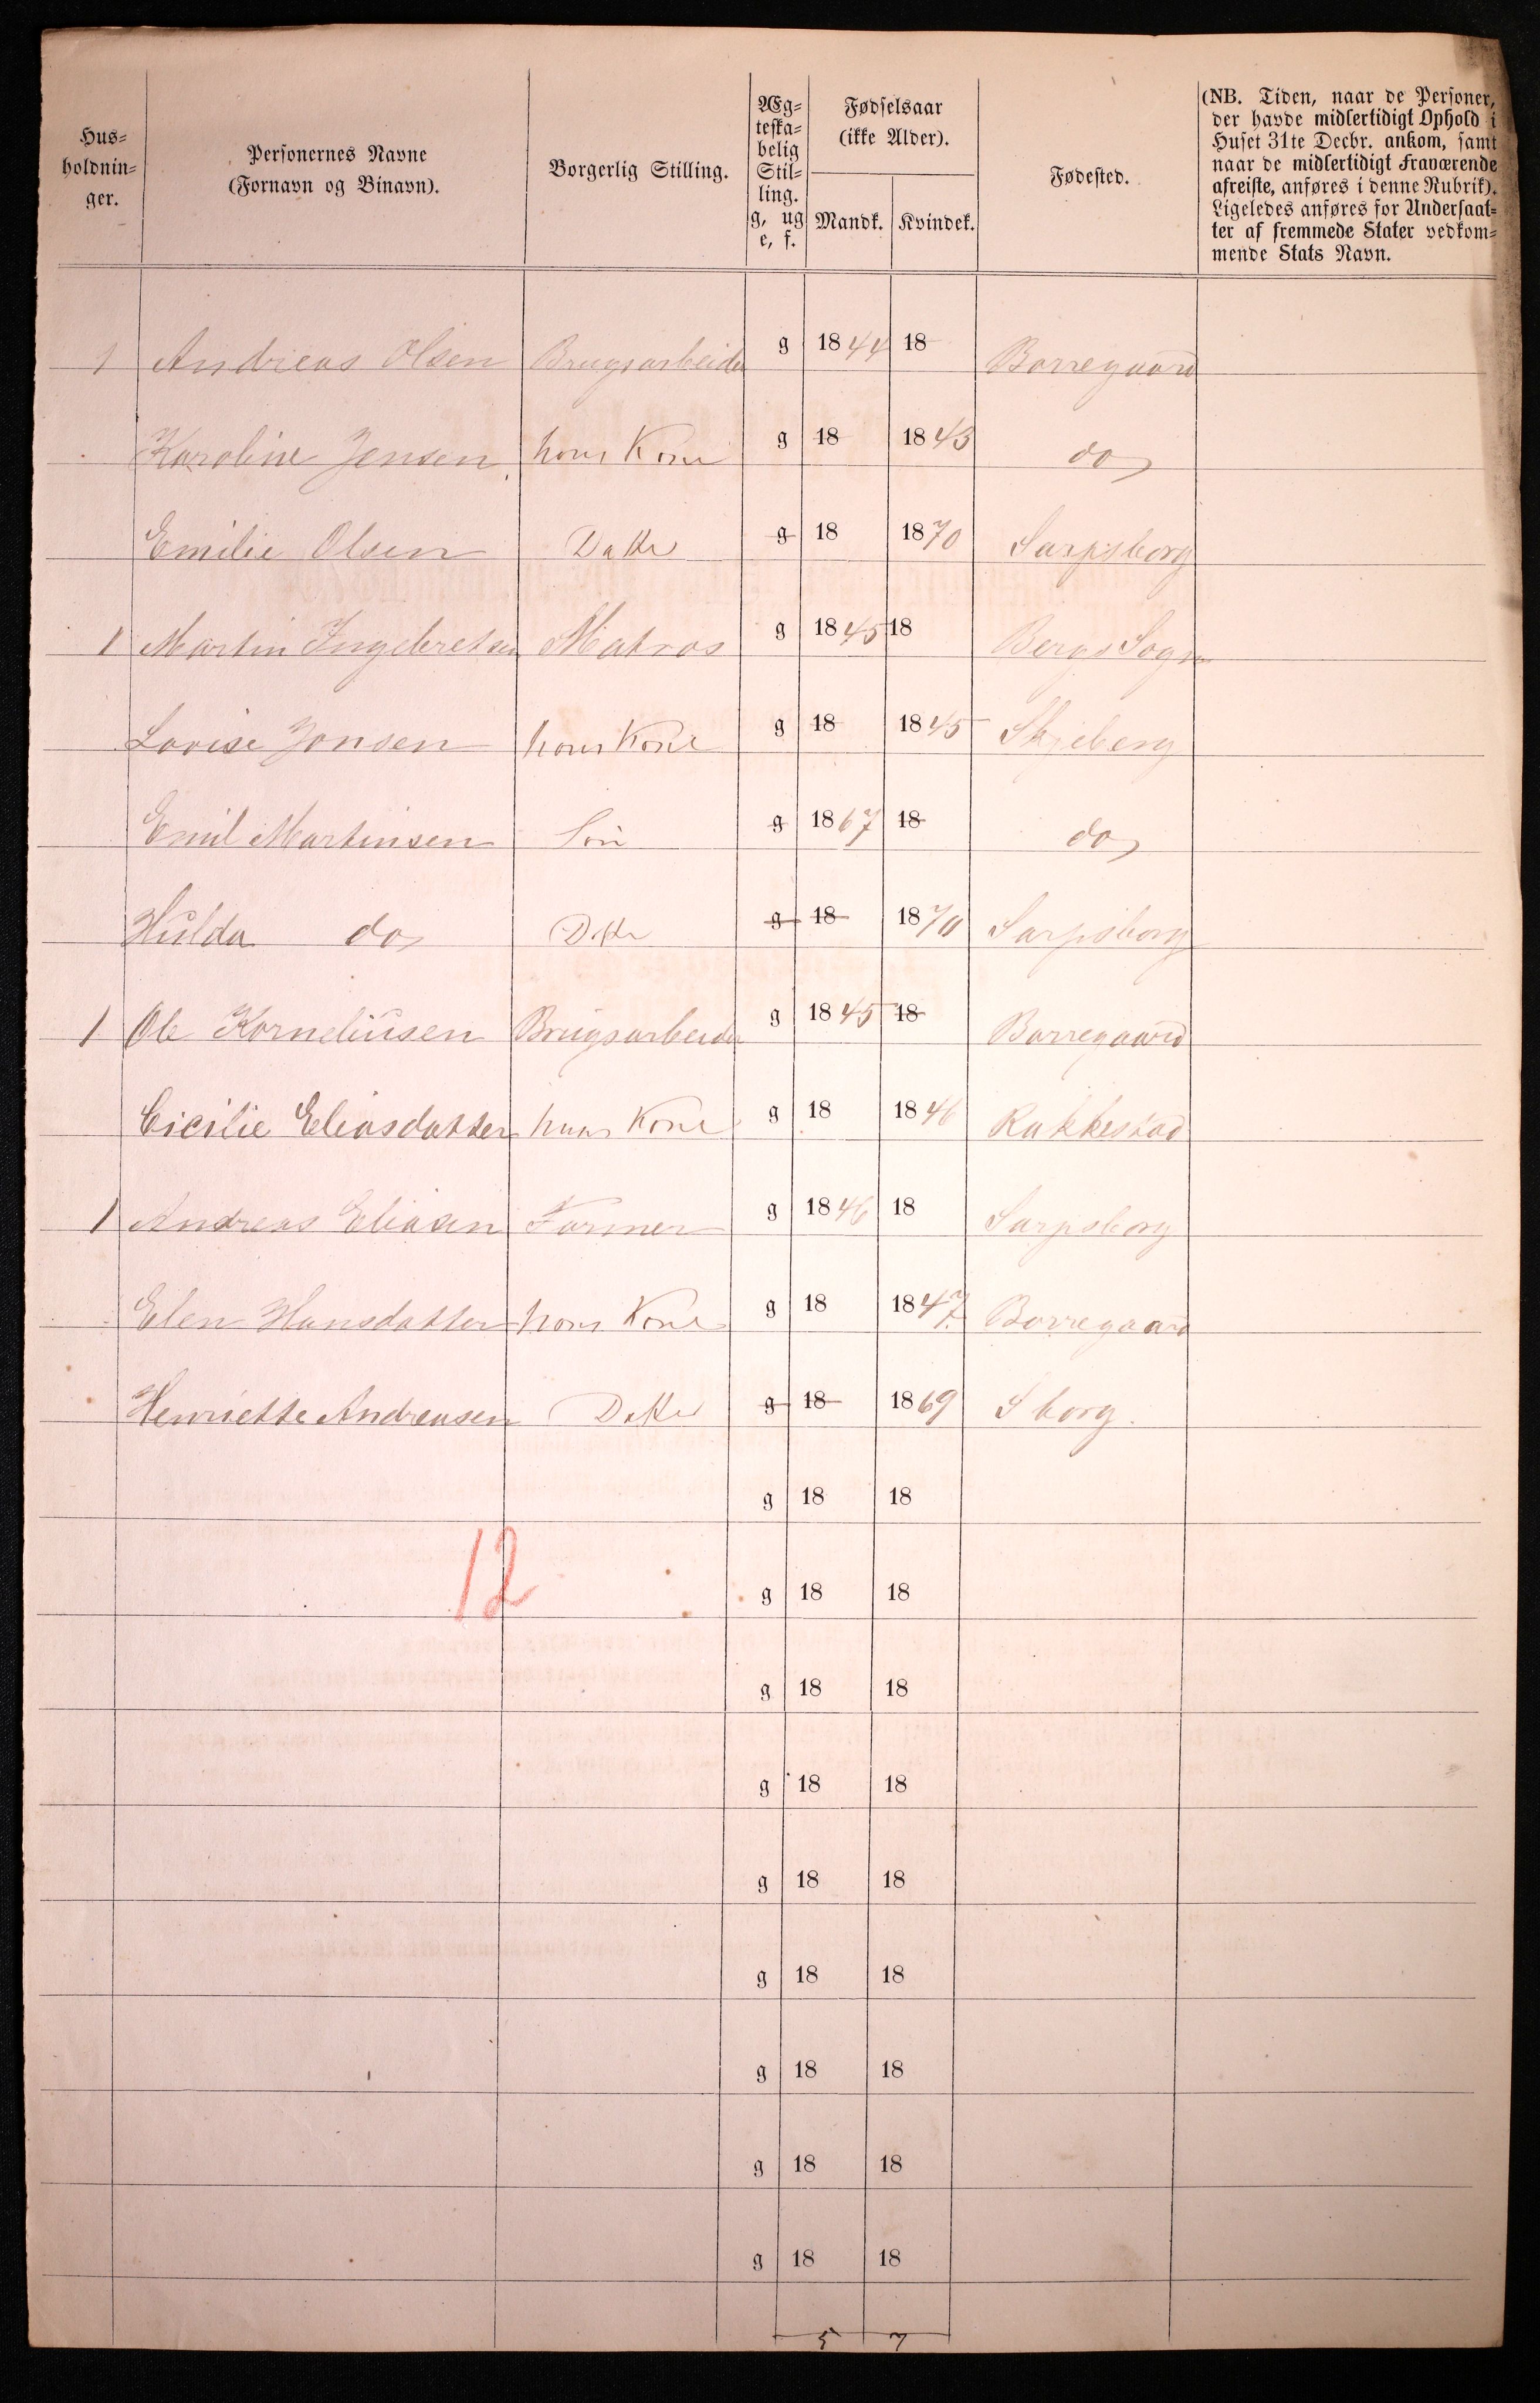 Hus-
holdnin-
ger.
Personernes Navne
(Fornavn og Binavn).
Borgerlig Stilling.
Æg-
teska-
belig
Stil-
ling.
g, ug
e, f.
Fødselsaar
(ikke Alder).
Mandk. Kvindek.
Fødested.
(NB. Tiden, naar de Personer,
der havde midlertidigt Ophold i
Huset 31te Decbr. ankom, samt
naar de midlertidigt Fraværende
afreiste, anføres i denne Rubrik).
Ligeledes anføres for Undersaat-
ter af fremmede Stater vedkom-
mende Stats Navn.
1 Andreas Olsen Brugsarbeider g 1844 18 Borregaard
Karoline Jensen hans Kone g 18 1843 do,
Emilie Olsen Datter g 18 1870 Sarpsborg
1 Martin Ingebretsen Matros g 1845 18 Bergs Sogn
Lovise Jonsen hans Kone g 18 1845 Skjeberg
Emil Martinsen Sön g 1867 18 do,
Hulda do, Dtter g 18 1870 Sarpsborg
1 Ole Korneliusen Brugsarbeider g 1845 18 Borregaard
Cicilie Eliasdatter hans Kone g 18 1846 Rakkestad
1 Andreas Eliasen Former g 1846 18 Sarpsborg
Elen Hansdatter hans Kone g 18 1847. Borregaard
Henriette Andreasen Datter g 18 1869 Sborg.
g 18 18
12
g 18 18
g 18 18
g 18 18
g 18 18
g 18 18
g 18 18
g 18 18
g 18 18
5 7